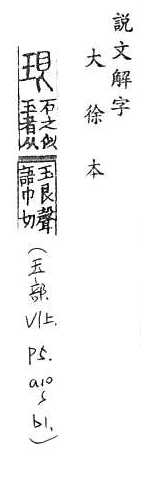 説文解字
大徐本
珢
石之似
玉者从
玉艮聲
語巾切
(玉部.
V1上.
P5.
a10
～
b1.)